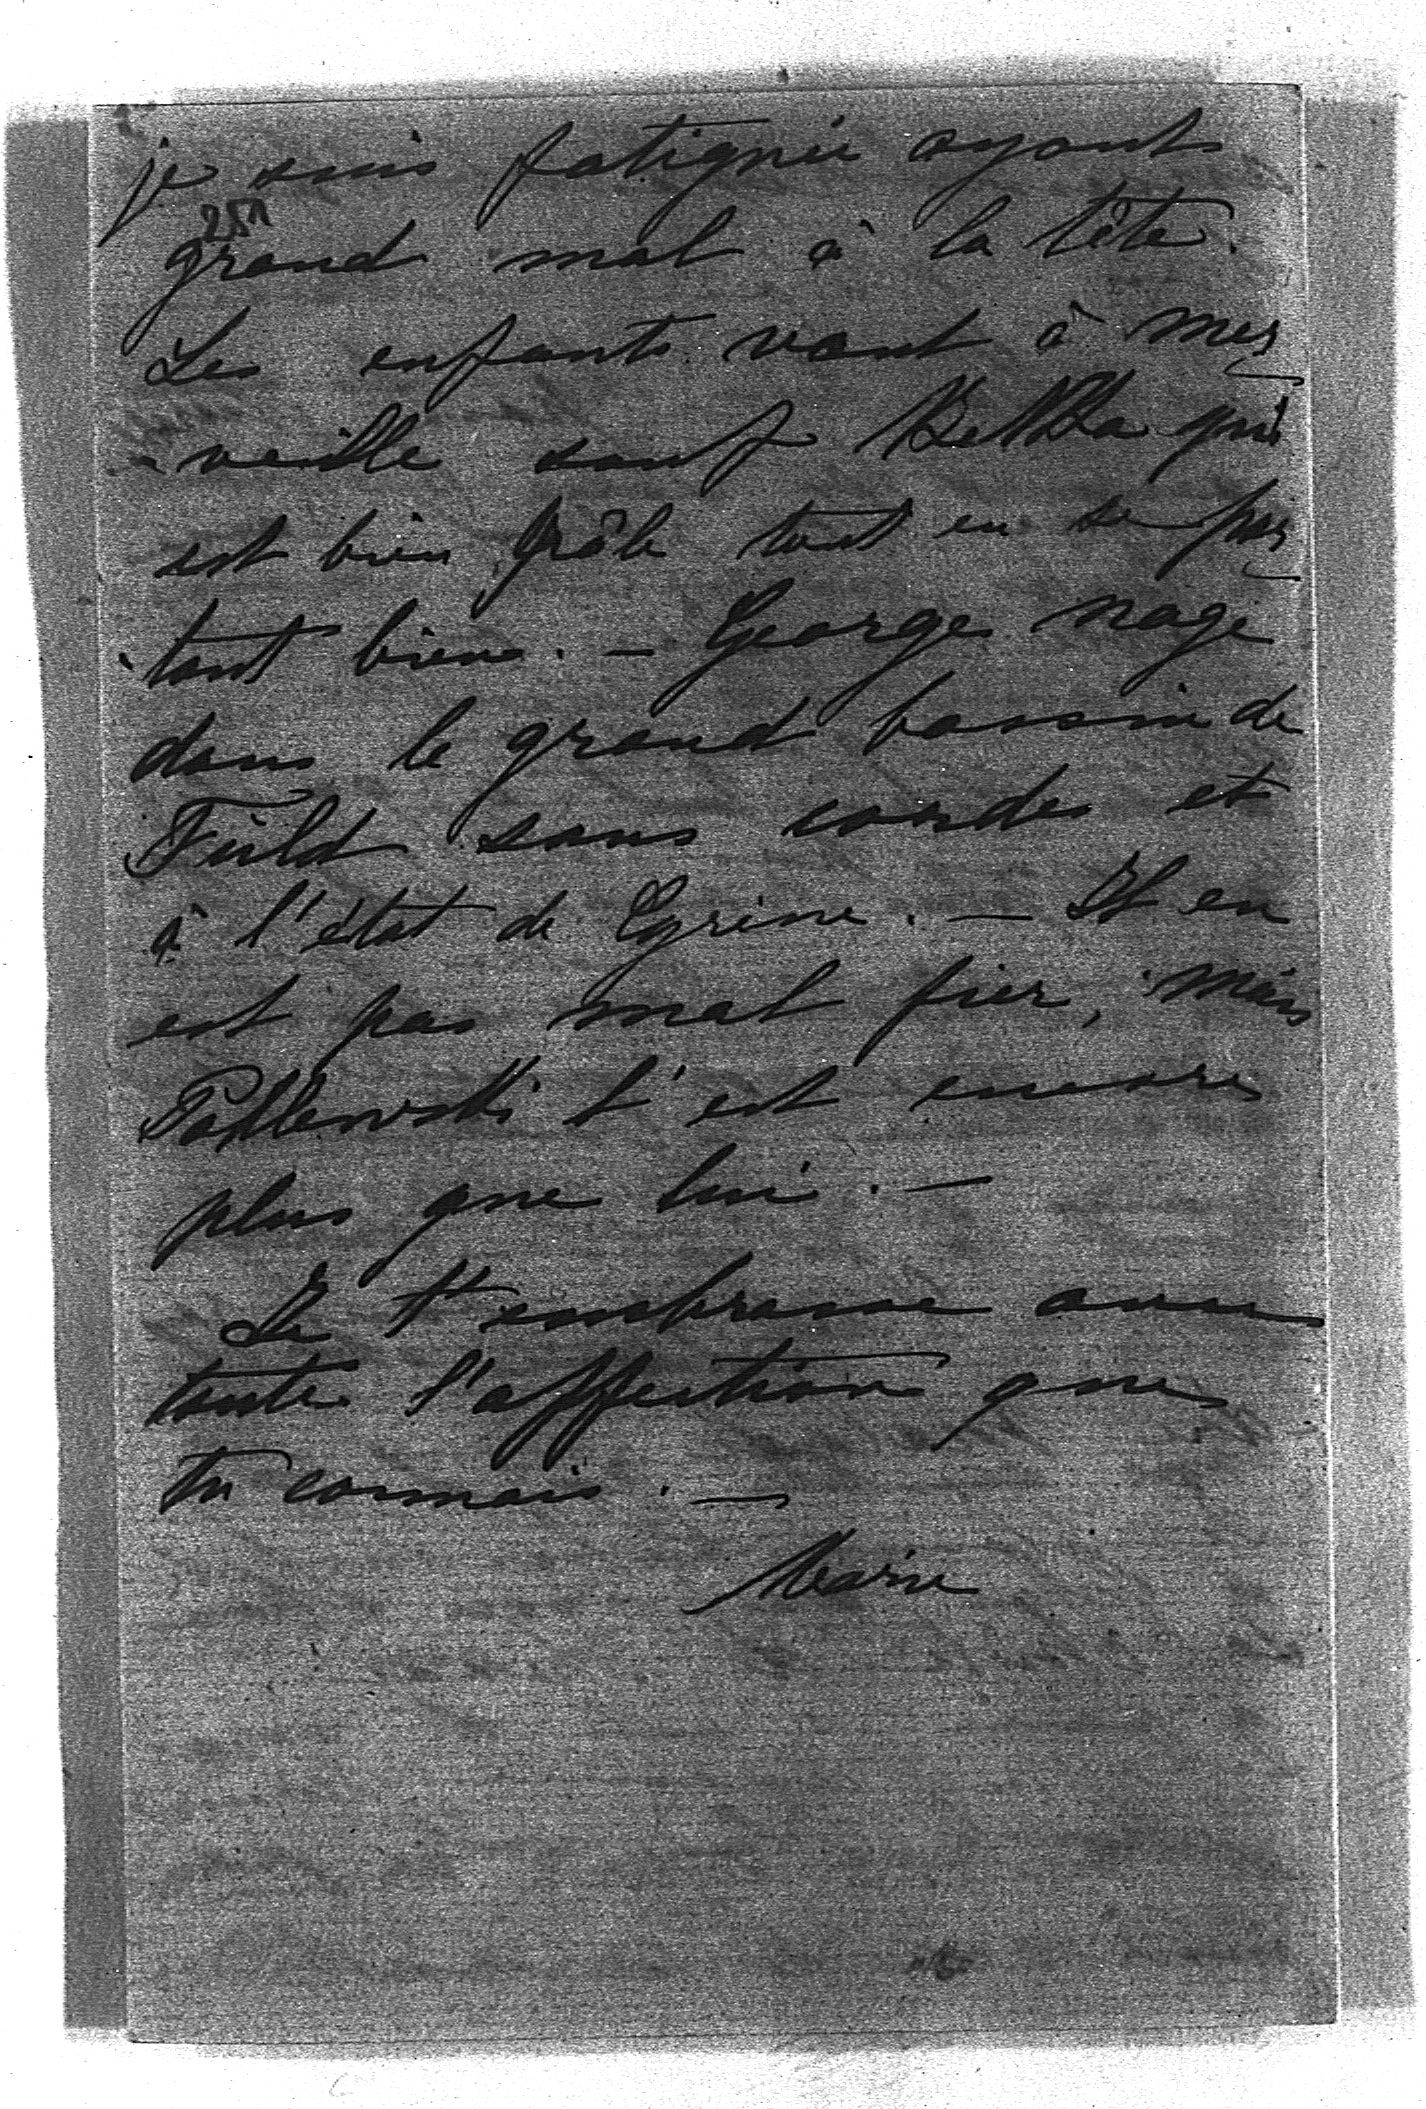 je suis fatiguée ayant
251
grand mal à la tête.
Les enfants vont à mer
veille sauf Bebka qui
est bien frêle tout en se por
tant bien. — George nage
dans le grand bassin de
Füld sans cordes et
à l'état de . — Il en
est pas mal fier, mais
l'est encore
plus que lui. —
Je t'embrasse avec
toute l'affection que
tu connais. —
Marie